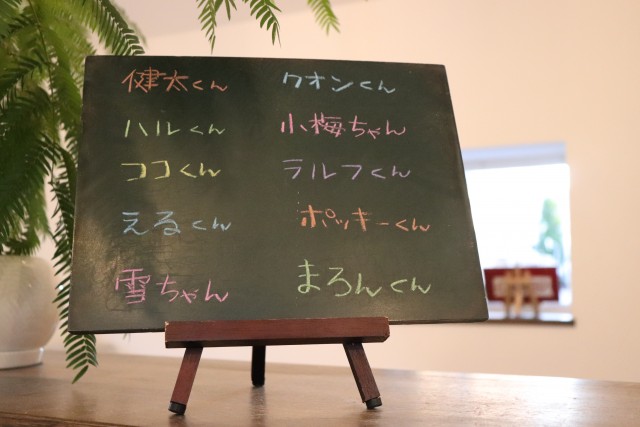 健太くん
ハルくん
ココくん
えるくん
雪ちゃん
クオンくん
小梅ちゃん
ラルフくん
ポッキーくん
まろんくん